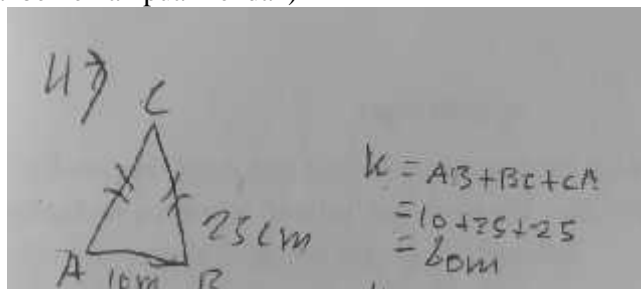 4)
C
25cm
A 10m B
K = AB+BC+CA
= 10+25+25
= 60m